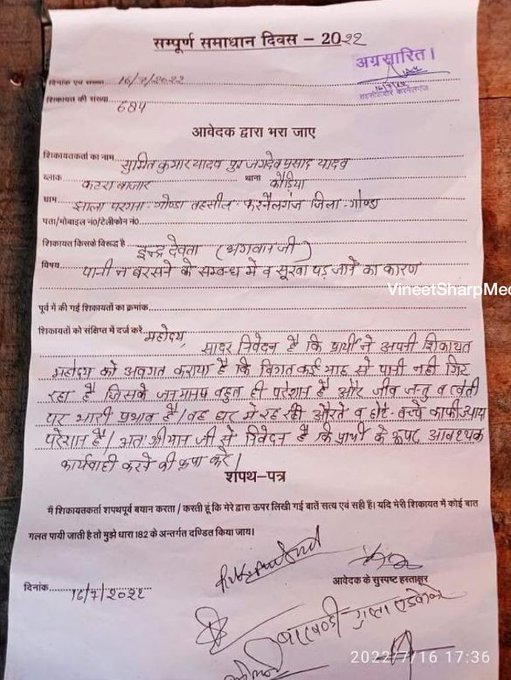 सम्पूर्ण समाधान दिवस – 20२२
अग्रसारित।
दिनांक एवं संख्या १६/७/२०२२
१६/७/२२
शिकायत की संख्या 684
आवेदक द्वारा भरा जाए
शिकायतकर्ता का नाम सुमित कुमार यादव पुत्र जगदेव प्रसाद यादव
ब्लाक कटरा बाजार थाना कौड़िया
ग्राम झाला परगना-गोण्डा तहसील-करनैलगंज जिला-गोण्डा
पता/मोबाइल नं0/टेलीफोन नं0
शिकायत किसके विरूद्ध है इन्द्र देवता (भगवान जी)
विषय पानी न बरसने के सम्बन्ध में व सूखा पड़ जाने का कारण
VineetSharpMed
पूर्व में की गई शिकायतों का क्रमांक
शिकायतों को संक्षिप्त में दर्ज करें महोदय,
सादर निवेदन है कि प्रार्थी ने अपनी शिकायत
महोदय को अवगत कराया है कि विगत कई माह से पानी नहीं गिर
रहा है जिसके जनमानस बहुत ही परेशान है और जीव जन्तु व खेती
पर भारी प्रभाव है। वह घर में रह रही औरतें व छोटे-बच्चे काफी
परेशान है। अतः श्रीमान जी से निवेदन है कि प्रार्थी के ऊपर आवश्यक
कार्यवाही करने की कृपा करें।
शपथ-पत्र
मै शिकायतकर्ता शपथपूर्व बयान करता / करती हूं कि मेरे द्वारा ऊपर लिखी गई बातें सत्य एवं सही हैं। यदि मेरी शिकायत में कोई बात
गलत पायी जाती है तो मुझे धारा 182 के अन्तर्गत दण्डित किया जाय।
दिनांक १६/७/२०२२
आवेदक के सुस्पष्ट हस्ताक्षर
2022/7/16 17:36